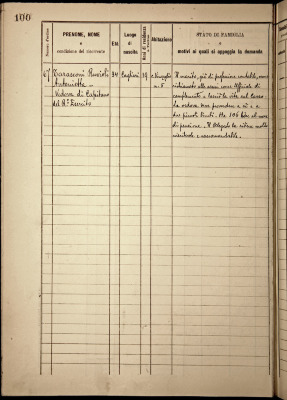 100
Numero d'ordine
PRENOME, NOME
e
condizione del ricorrente
Età
Luogo
di
nascita
Anni di residenza
Abitazione
STATO DI FAMIGLIA
e
motivi ai quali si appoggia la domanda
67
Antonietta
Vedova di Capitano
del R° Esercito
34
Cagliari
Il marito, già di professione contabile, venne
richiamato alle armi come Ufficiale di
complemento e lasciò la vita sul Carso
la vedova deve provvedere a sé e a
due piccoli bimbi. Ha 106 lire al mese
di pensione. Il Delegato la ritiene molto
meritevole e raccomandabile.